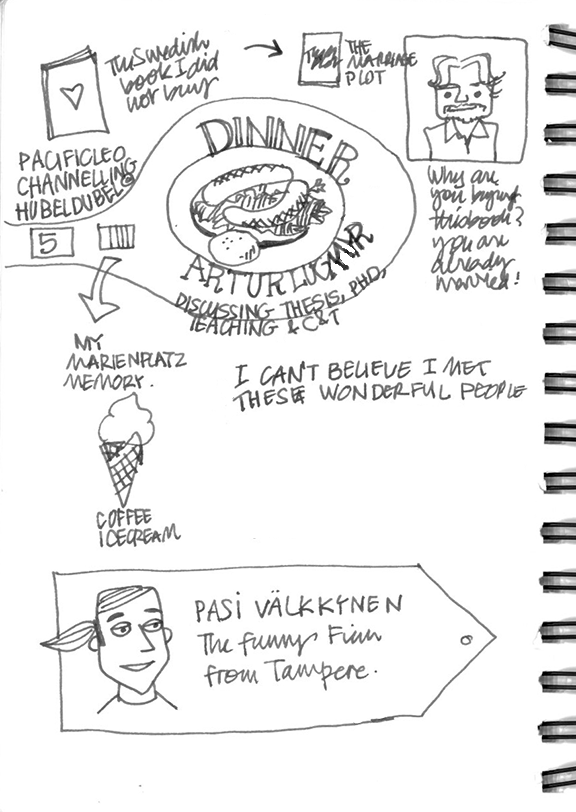 The Swedish
book I did
not buy
THE
MARRIAGE
PLOT
DINNER
PACIFICLEO
CHANNELLING
HUBELDUBEL
5
Why are
you buying
this book?
you are
already
married!
ARTUR LUGMYR
DISCUSSING THESIS, PHD,
TEACHING & C&T
MY
MARIENPLATZ
MEMORY.
I CAN'T BELIEVE I MET
THESE WONDERFUL PEOPLE
COFFEE
ICECREAM
PASI VÄLKKYNEN
The funny Finn
from Tampere.